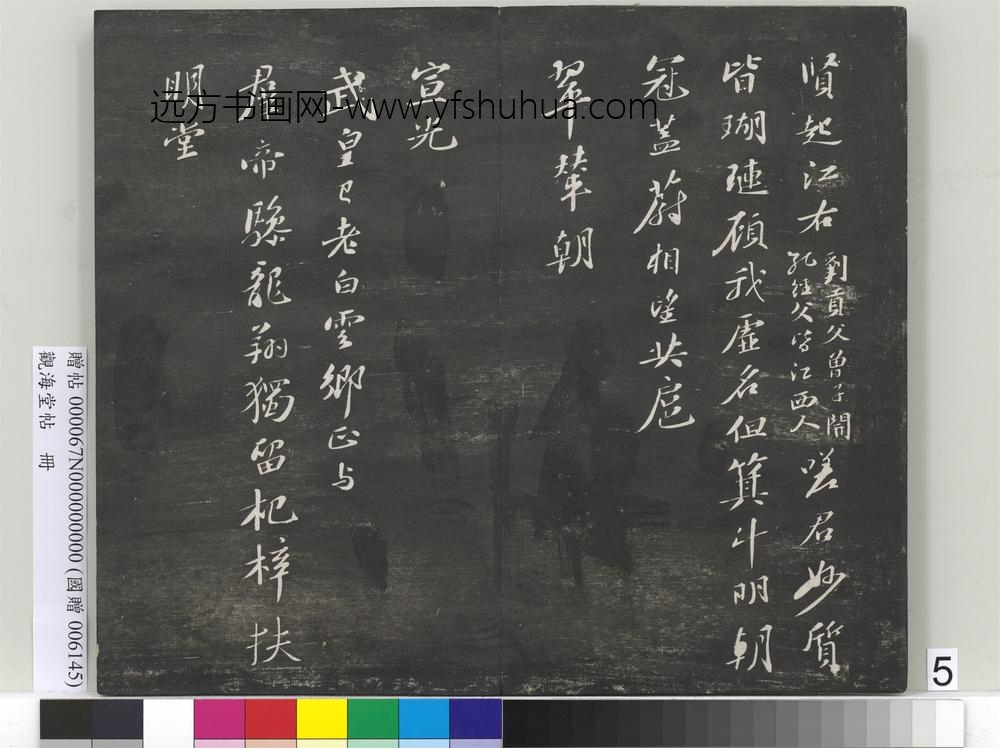 賢起江右
劉貢父曾子開
孔經父皆江西人
嗟君妙質
皆瑚璉顧我虛名但箕斗明朝
冠蓋蔚相望共扈
翠輦朝
宣光
武皇已老白雲鄉正与
羣帝驂龍翔獨留杞梓扶
明堂
远方书画网-www.yfshuhua.com
贈帖 000067N000000000 (國贈 006145)
觀海堂帖 冊
5